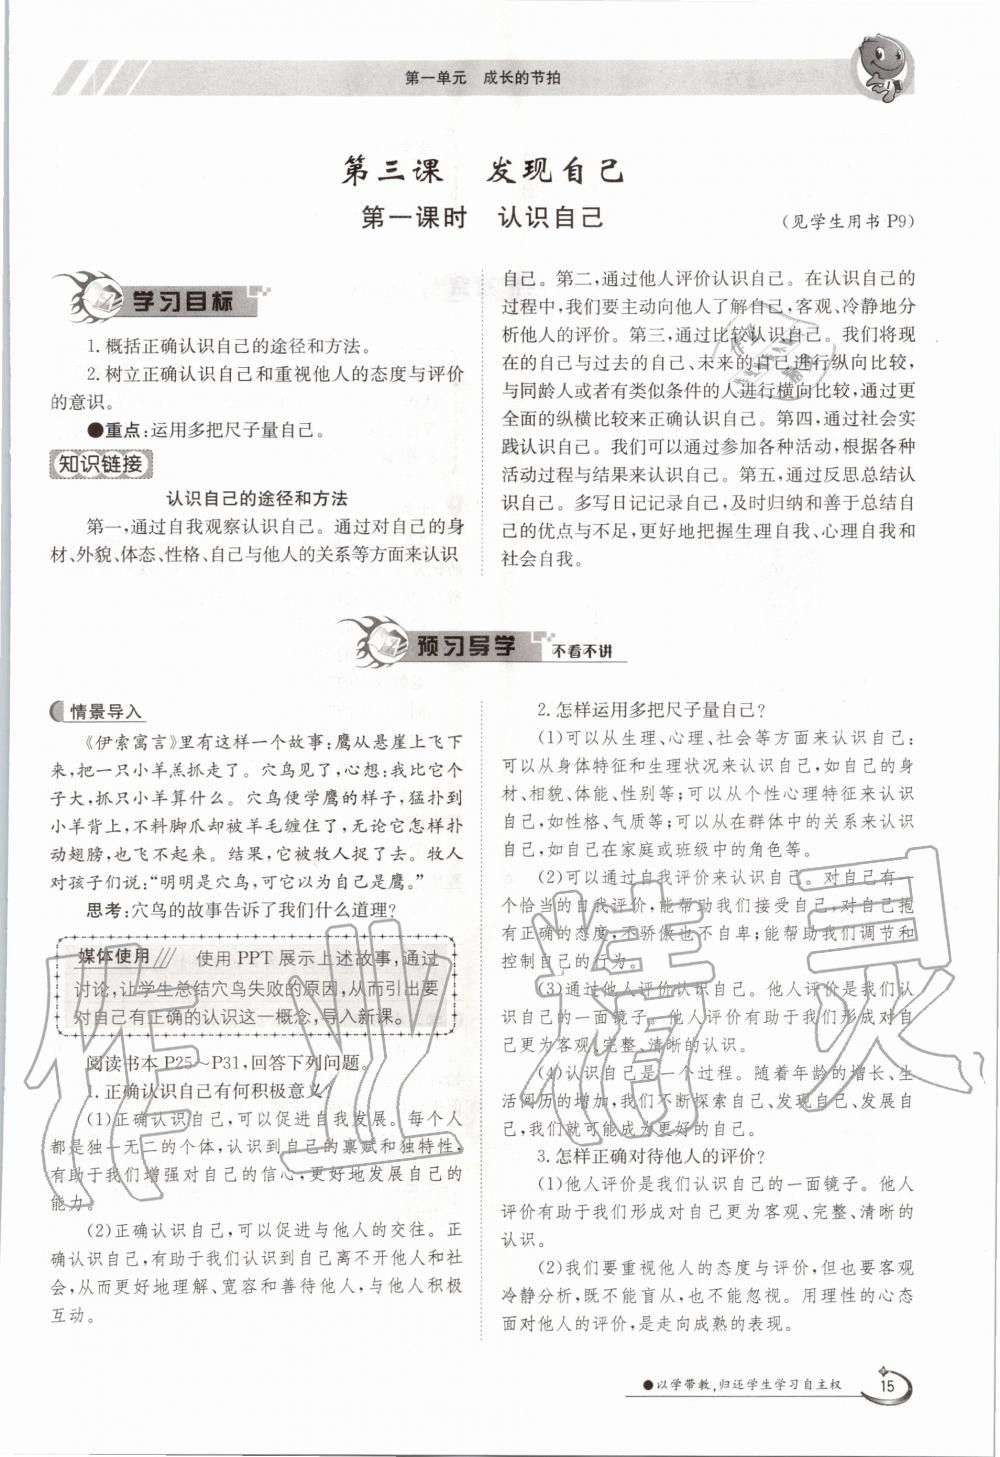 第一单元 成长的节拍
第三课 发现自己
第一课时 认识自己
(见学生用书 P9)
学习目标
1. 概括正确认识自己的途径和方法。
2. 树立正确认识自己和重视他人的态度与评价
的意识。
●重点:运用多把尺子量自己。
知识链接
认识自己的途径和方法
第一,通过自我观察认识自己。通过对自己的身
材、外貌、体态、性格、自己与他人的关系等方面来认识
自己。第二,通过他人评价认识自己。在认识自己的
过程中,我们要主动向他人了解自己,客观、冷静地分
析他人的评价。第三,通过比较认识自己。我们将现
在的自己与过去的自己、未来的自己进行纵向比较,
与同龄人或者有类似条件的人进行横向比较,通过更
全面的纵横比较来正确认识自己。第四,通过社会实
践认识自己。我们可以通过参加各种活动,根据各种
活动过程与结果来认识自己。第五,通过反思总结认
识自己。多写日记记录自己,及时归纳和善于总结自
己的优点与不足,更好地把握生理自我、心理自我和
社会自我。
预习导学 不看不讲
情景导入
《伊索寓言》里有这样一个故事:鹰从悬崖上飞下
来,把一只小羊羔抓走了。穴鸟见了,心想:我比它个
子大,抓只小羊算什么。穴鸟便学鹰的样子,猛扑到
小羊背上,不料脚爪却被羊毛缠住了,无论它怎样扑
动翅膀,也飞不起来。结果,它被牧人捉了去。牧人
对孩子们说:“明明是穴鸟,可它以为自己是鹰。”
思考:穴鸟的故事告诉了我们什么道理?
媒体使用 使用 PPT 展示上述故事,通过
讨论,让学生总结穴鸟失败的原因,从而引出要
对自己有正确的认识这一概念,导入新课。
阅读书本 P25～P31,回答下列问题。
1. 正确认识自己有何积极意义?
(1)正确认识自己,可以促进自我发展。每个人
都是独一无二的个体,认识到自己的禀赋和独特性,
有助于我们增强对自己的信心,更好地发展自己的
能力。
(2)正确认识自己,可以促进与他人的交往。正
确认识自己,有助于我们认识到自己离不开他人和社
会,从而更好地理解、宽容和善待他人,与他人积极
互动。
2. 怎样运用多把尺子量自己?
(1)可以从生理、心理、社会等方面来认识自己:
可以从身体特征和生理状况来认识自己,如自己的身
材、相貌、体能、性别等;可以从个性心理特征来认识
自己,如性格、气质等;可以从在群体中的关系来认识
自己,如自己在家庭或班级中的角色等。
(2)可以通过自我评价来认识自己。对自己有一
个恰当的自我评价,能帮助我们接受自己,对自己抱
有正确的态度,不骄傲也不自卑;能帮助我们调节和
控制自己的行为。
(3)通过他人评价认识自己。他人评价是我们认
识自己的一面镜子。他人评价有助于我们形成对自
己更为客观、完整、清晰的认识。
(4)认识自己是一个过程。随着年龄的增长、生
活阅历的增加,我们不断探索自己、发现自己、发展自
己,我们就可能成为更好的自己。
3. 怎样正确对待他人的评价?
(1)他人评价是我们认识自己的一面镜子。他人
评价有助于我们形成对自己更为客观、完整、清晰的
认识。
(2)我们要重视他人的态度与评价,但也要客观
冷静分析,既不能盲从,也不能忽视。用理性的心态
面对他人的评价,是走向成熟的表现。
●以学带教,归还学生学习自主权
15
作业精灵